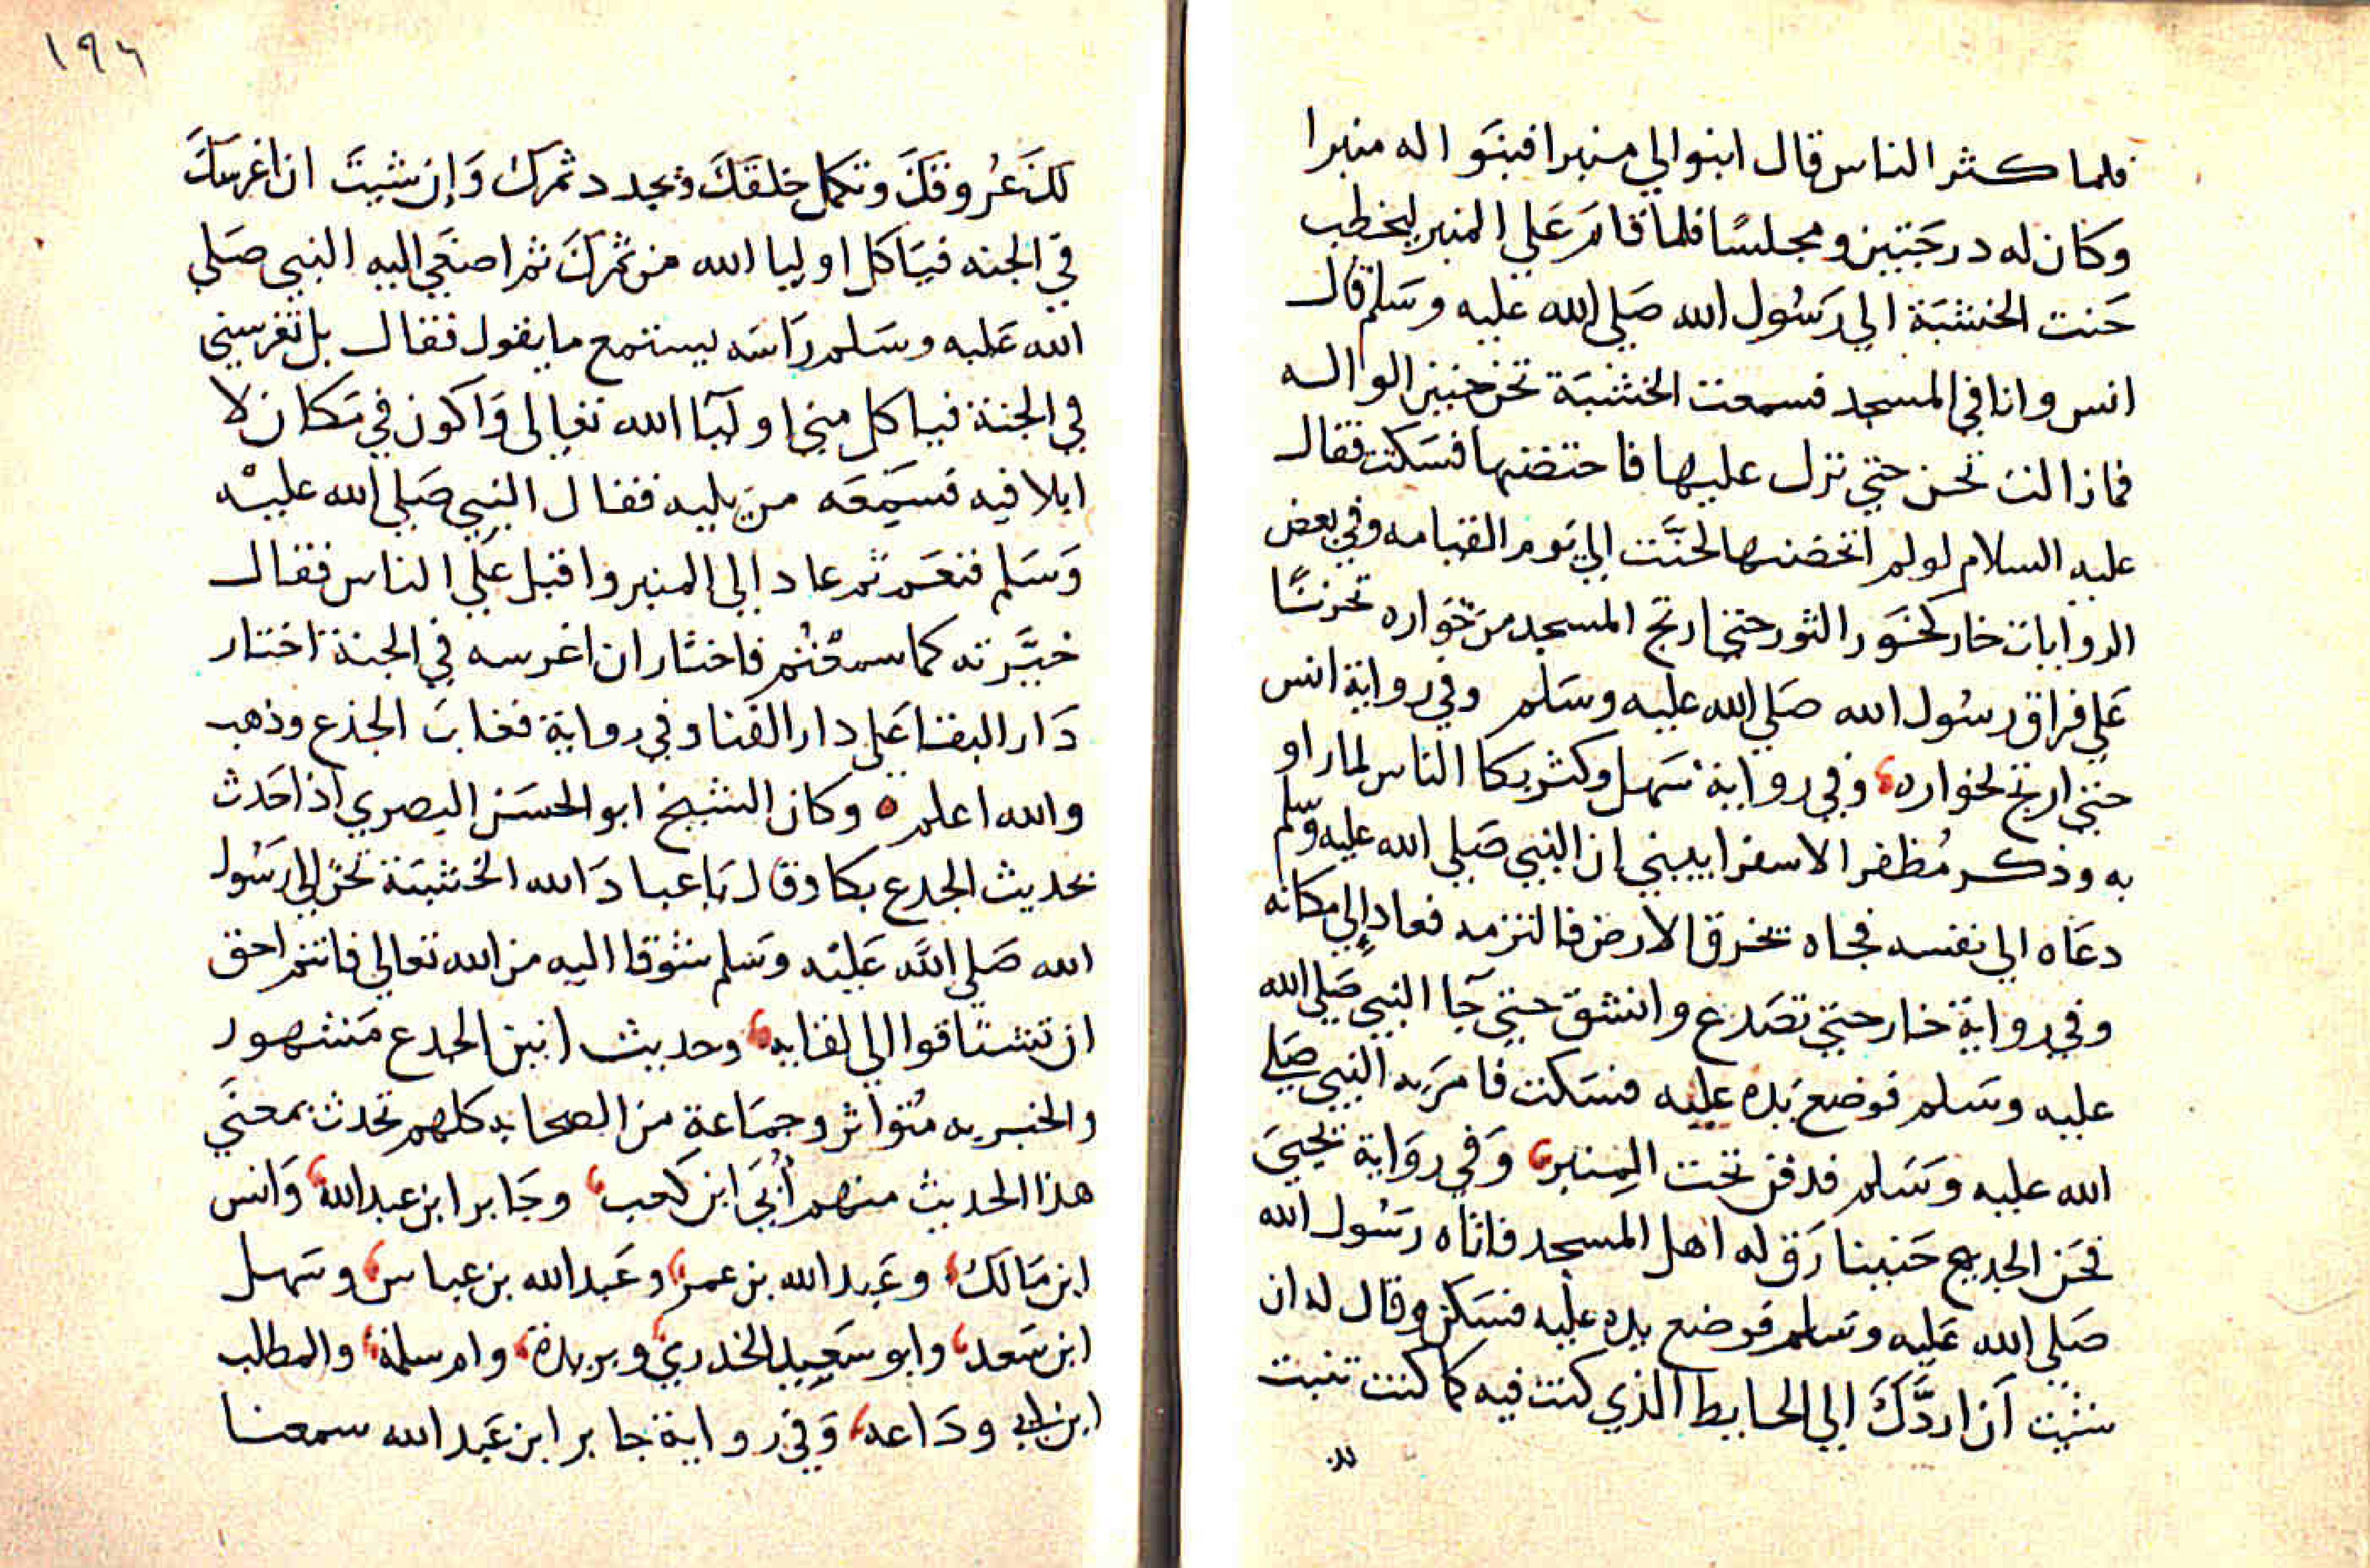 فلما كثر الناس قال ابنوا لي منبرا فبنوا له منبرا
وكان له درجتين ومجلسًا فلما قام علي المنبر ليخطب
حنت الخشبة الي رسول الله صلي الله عليه وسلم قال
انس وانا في المسجد فسمعت الخشبة تحن حنين الواله
فما زالت تحن حتي نزل عليها فاحتضنها فسكنت فقال
عليه السلام لو لم احتضنها لحنَّت الي يوم القيامه وفي بعض
الروايات خار كخور الثور حتي ارتج المسجد من خواره تحزنًا
علي فراق رسول الله صلي الله عليه وسلم وفي رواية انس
حتي ارتج لخواره، وفي رواية سهل وكثر بكا الناس لما راو
به وذكر مُظفر الاسفراييني ان النبي صلي الله عليه وسلم
دعاه الي نفسه فجاه يخرق الارض فالتزمه فعاد إلي مكانه
وفي رواية خار حتي تصدع وانشق حتي جآ النبي صلي الله
عليه وسلم فوضع يده عليه فسكت فامر به النبي صلي
الله عليه وسلم فدفن تحت المنبر، وفي رواية يحيي
فحن الجدع حنينا رق له اهل المسجد فاتاه رسول الله
صلي الله عليه وسلم فوضع يده عليه فسكن وقال له ان
شيت أن اردَّك الي الحايط الذي كنت فيه كما كنت تنبت
لك
١٩٦
لك عروقك وتكمل خلقك ويجدد ثمرك وإن شيت ان اغرسك
في الجنه فياكل اوليا الله من ثمرك ثم اصغي اليه النبي صلي
الله عليه وسلم راسه يستمع ما يقول فقال بل تغرسني
في الجنة فياكل مني اوليآ الله تعالى واكون في مكان لا
ابلا فيه فسمعه من يليه فقال النبي صلي الله عليه
وسلم فنعم ثم عاد إلى المنبر واقبل علي الناس فقال
خيَّرته كما سمعْتُم فاختار ان اغرسه في الجنة اختار
دار البقا على دار الفنا وفي رواية فغاب الجذع وذهب
والله اعلم ه وكان الشيخ ابو الحسن البصري اذا حدث
بحديث الجدع بكا وقال يا عباد الله الخشبة تحن إلى رسول
الله صلي الله عليه وسلم شوقا اليه من الله تعالي فانتم احق
ان تشتاقوا الي لقايه، وحديث انين الجدع مشهور
والخبر به متواتر وجماعة من الصحابه كلهم تحدث بمعني
هذا الحديث منهم أُبَي ابن كعب، وجابر ابن عبد الله، وانس
ابن مالك، وعبد الله بن عمر، وعبد الله بن عباس، وسهل
ابن سعد، وابو سعيد الخدري، وبريدة، وام سلمة، والمطلب
ابن ابي وداعه، وفي رواية جابر ابن عبد الله سمعنا